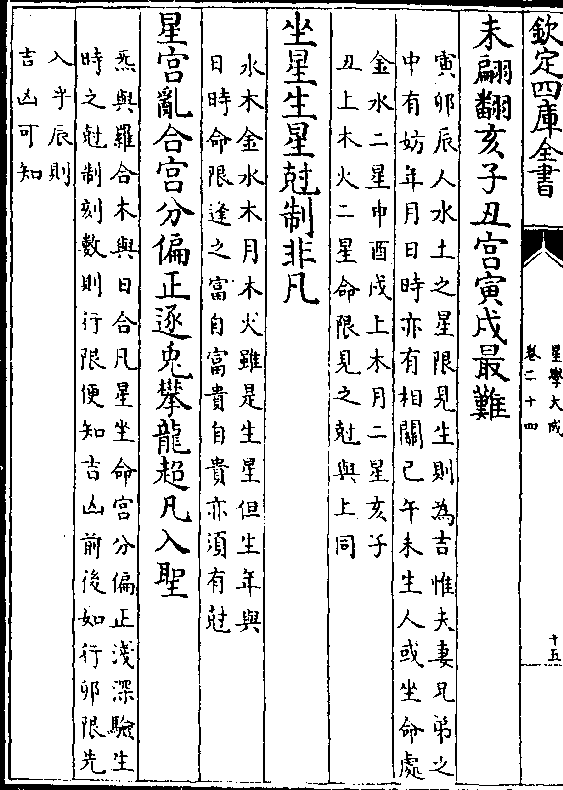 欽定四庫全書
星學大成
卷二十四
十五
未翩翻亥子丑宮寅戌最難
寅卯辰人水土之星限見生則為吉惟夫妻兄弟之
中有妨年月日時亦有相關巳午未生人或坐命處
金水二星申酉戌上木月二星亥子
丑上木火二星命限見之尅與上同
坐星生星尅制非凡
水木金水木月木火雖是生星但生年與
日時命限逢之富自富貴自貴亦須有尅
星宮亂合宮分偏正逐兎攀龍超凡入聖
炁與羅合木與日合凡星坐命宮分偏正淺深驗生
時之尅制刻數則行限便知吉凶前後如行卯限先
入乎辰則
吉凶可知